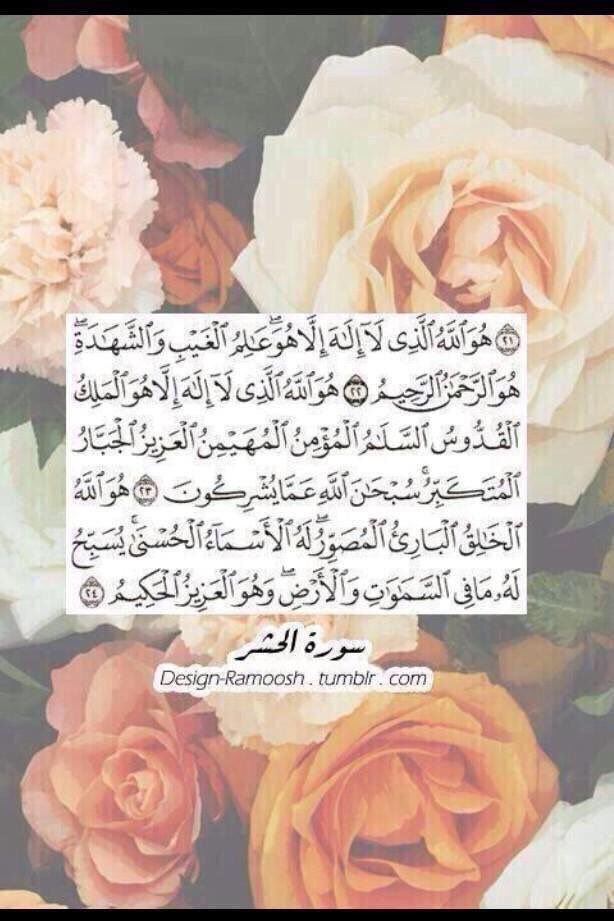 ﴿٢١﴾ هُوَ ٱللَّهُ ٱلَّذِى لَآ إِلَٰهَ إِلَّا هُوَۖ عَٰلِمُ ٱلْغَيْبِ وَٱلشَّهَٰدَةِۖ
هُوَ ٱلرَّحْمَٰنُ ٱلرَّحِيمُ ﴿٢٢﴾ هُوَ ٱللَّهُ ٱلَّذِى لَآ إِلَٰهَ إِلَّا هُوَ ٱلْمَلِكُ
ٱلْقُدُّوسُ ٱلسَّلَٰمُ ٱلْمُؤْمِنُ ٱلْمُهَيْمِنُ ٱلْعَزِيزُ ٱلْجَبَّارُ
ٱلْمُتَكَبِّرُۚ سُبْحَٰنَ ٱللَّهِ عَمَّا يُشْرِكُونَ ﴿٢٣﴾ هُوَ ٱللَّهُ
ٱلْخَٰلِقُ ٱلْبَارِئُ ٱلْمُصَوِّرُۖ لَهُ ٱلْأَسْمَآءُ ٱلْحُسْنَىٰۚ يُسَبِّحُ
لَهُۥ مَا فِى ٱلسَّمَٰوَٰتِ وَٱلْأَرْضِۖ وَهُوَ ٱلْعَزِيزُ ٱلْحَكِيمُ ﴿٢٤﴾
سورة الحشر
Design-Ramoosh . tumblr . com